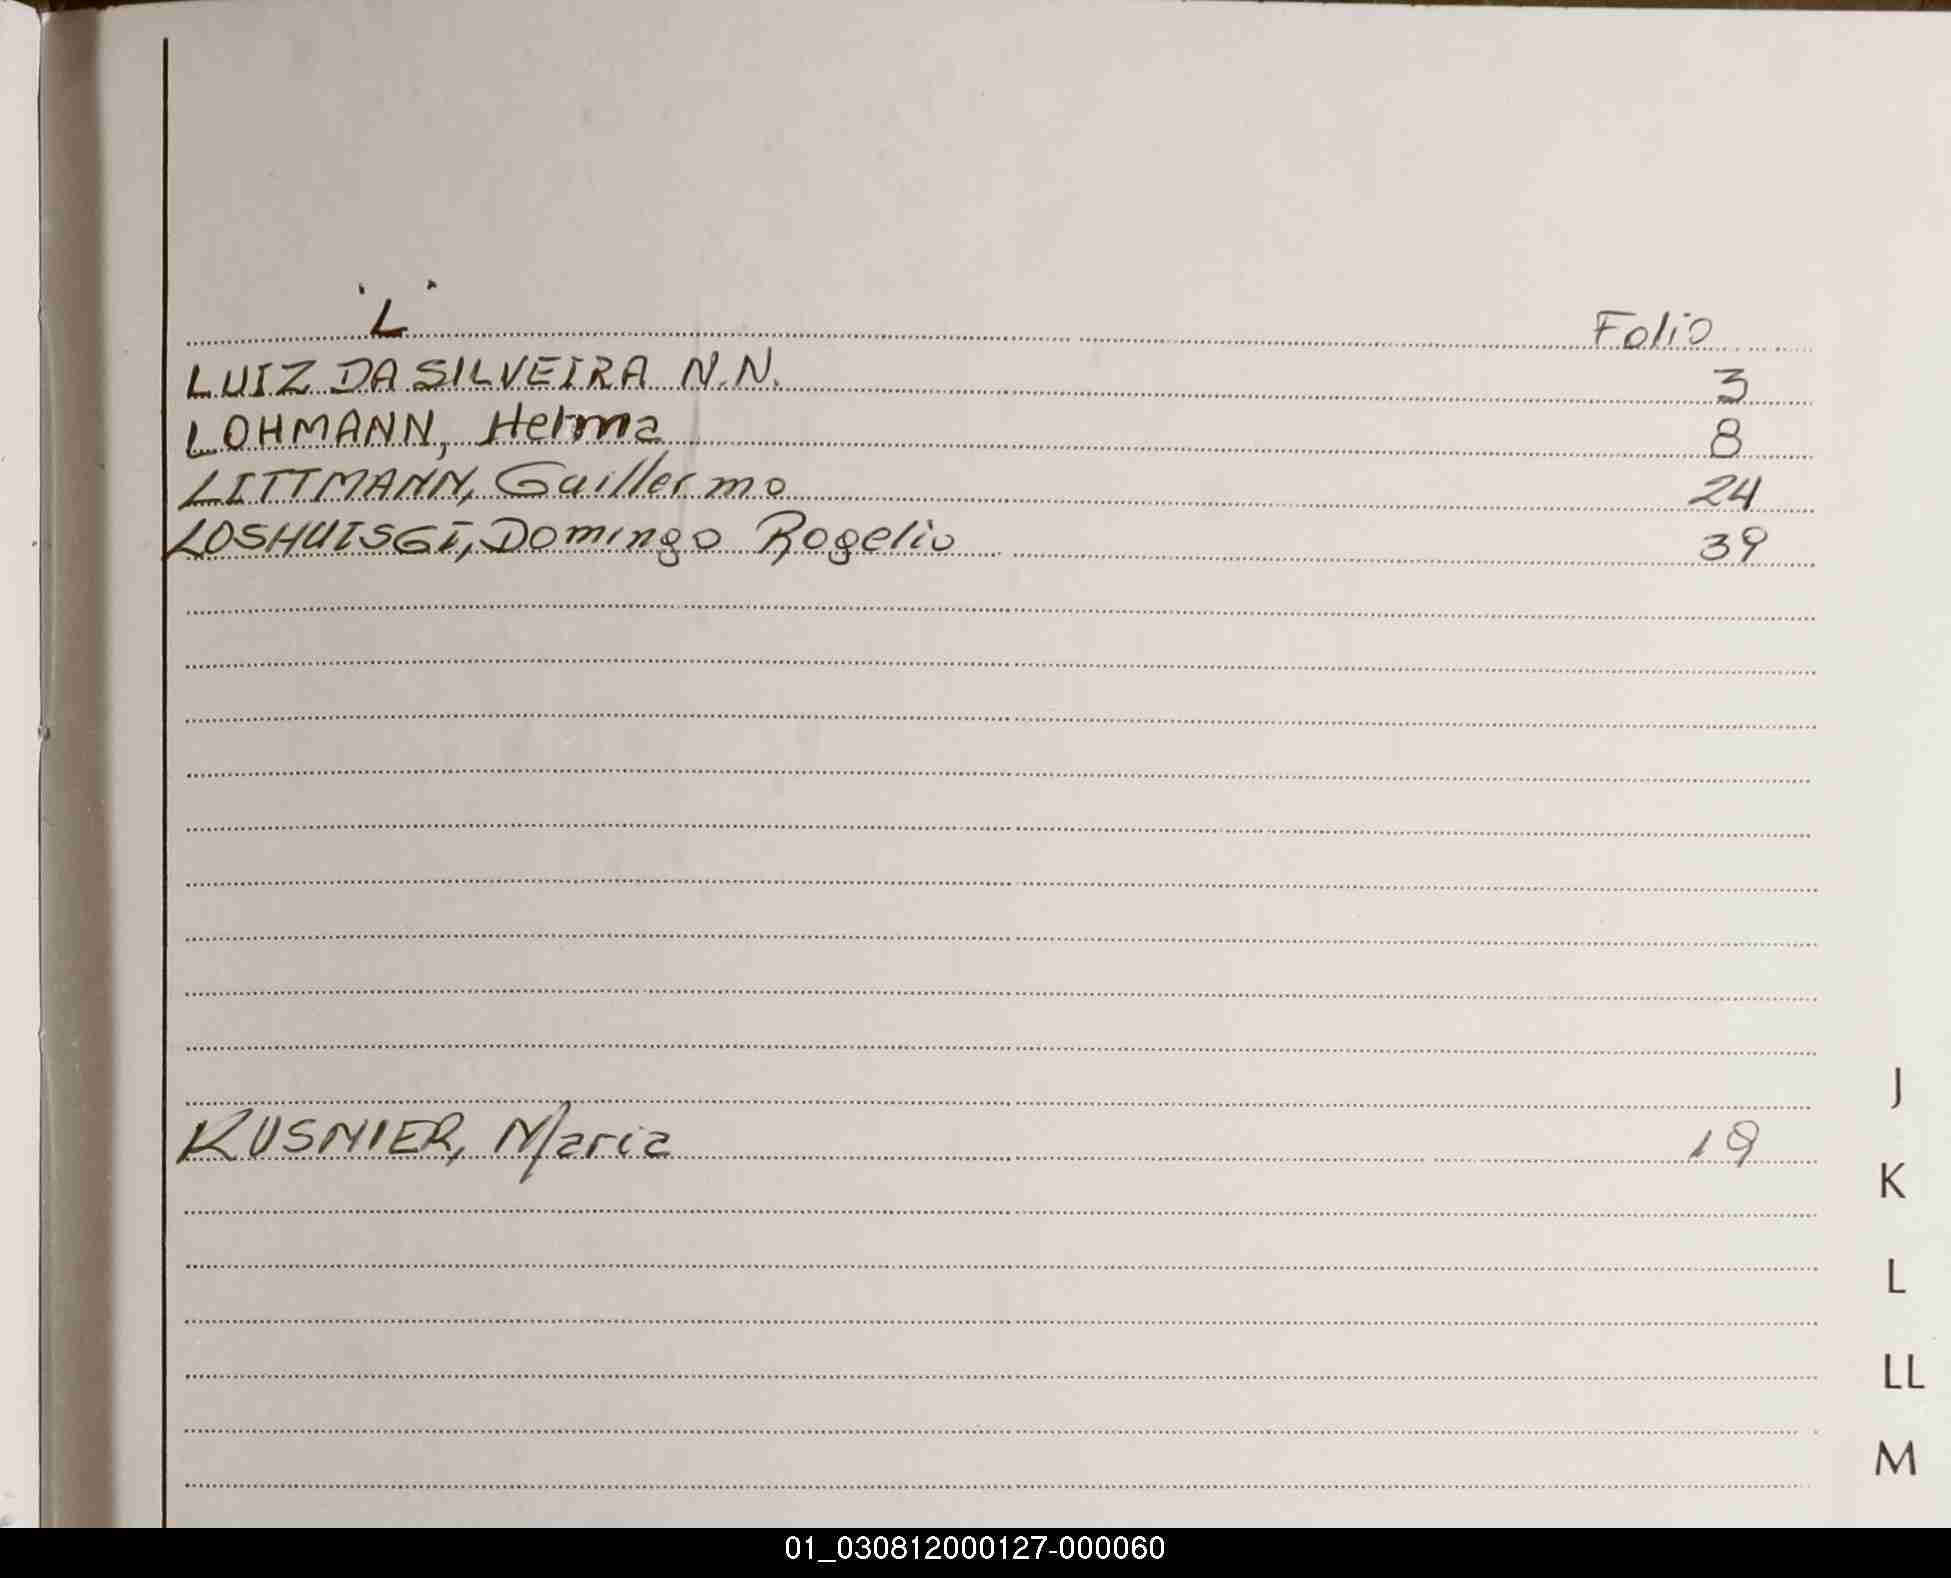 "L" Folio
LUIZ DA SILVEIRA N.N. 3
LOHMANN, Helma 8
LITTMANN, Guillermo 24
LOSHUISGI, Domingo Rogelio 39
J
KUSNIER, Maria 19
K
L
LL
M
01_030812000127-000060